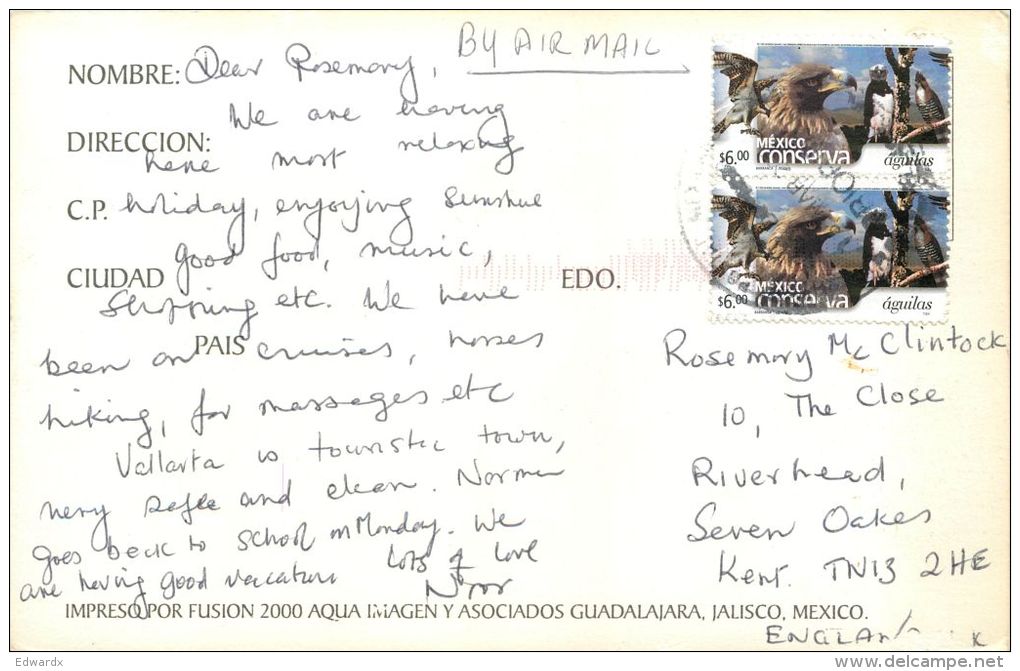 BY AIR MAIL
NOMBRE: Dear Rosemary,
We are having
DIRECCION:
here most relaxing
C.P. holiday, enjoying Sunshine
good food, music,
CIUDAD EDO.
Shopping etc. We have
PAIS
been on cruises, horses
hiking, for massages etc
Vallarta is touristic town,
very safe and clean. Norman
goes back to school on Monday. We
are having good vacation Lots of Love
MÉXICO
conserva
$6.00 águilas
MÉXICO
conserva
$6.00 águilas
Rosemary McClintock
10, The Close
Riverhead,
Seven Oakes
Kent. TN13 2HE
ENGLAND
IMPRESO POR FUSION 2000 AQUA IMAGEN Y ASOCIADOS GUADALAJARA, JALISCO, MEXICO.
Edwardx
delcampe.net